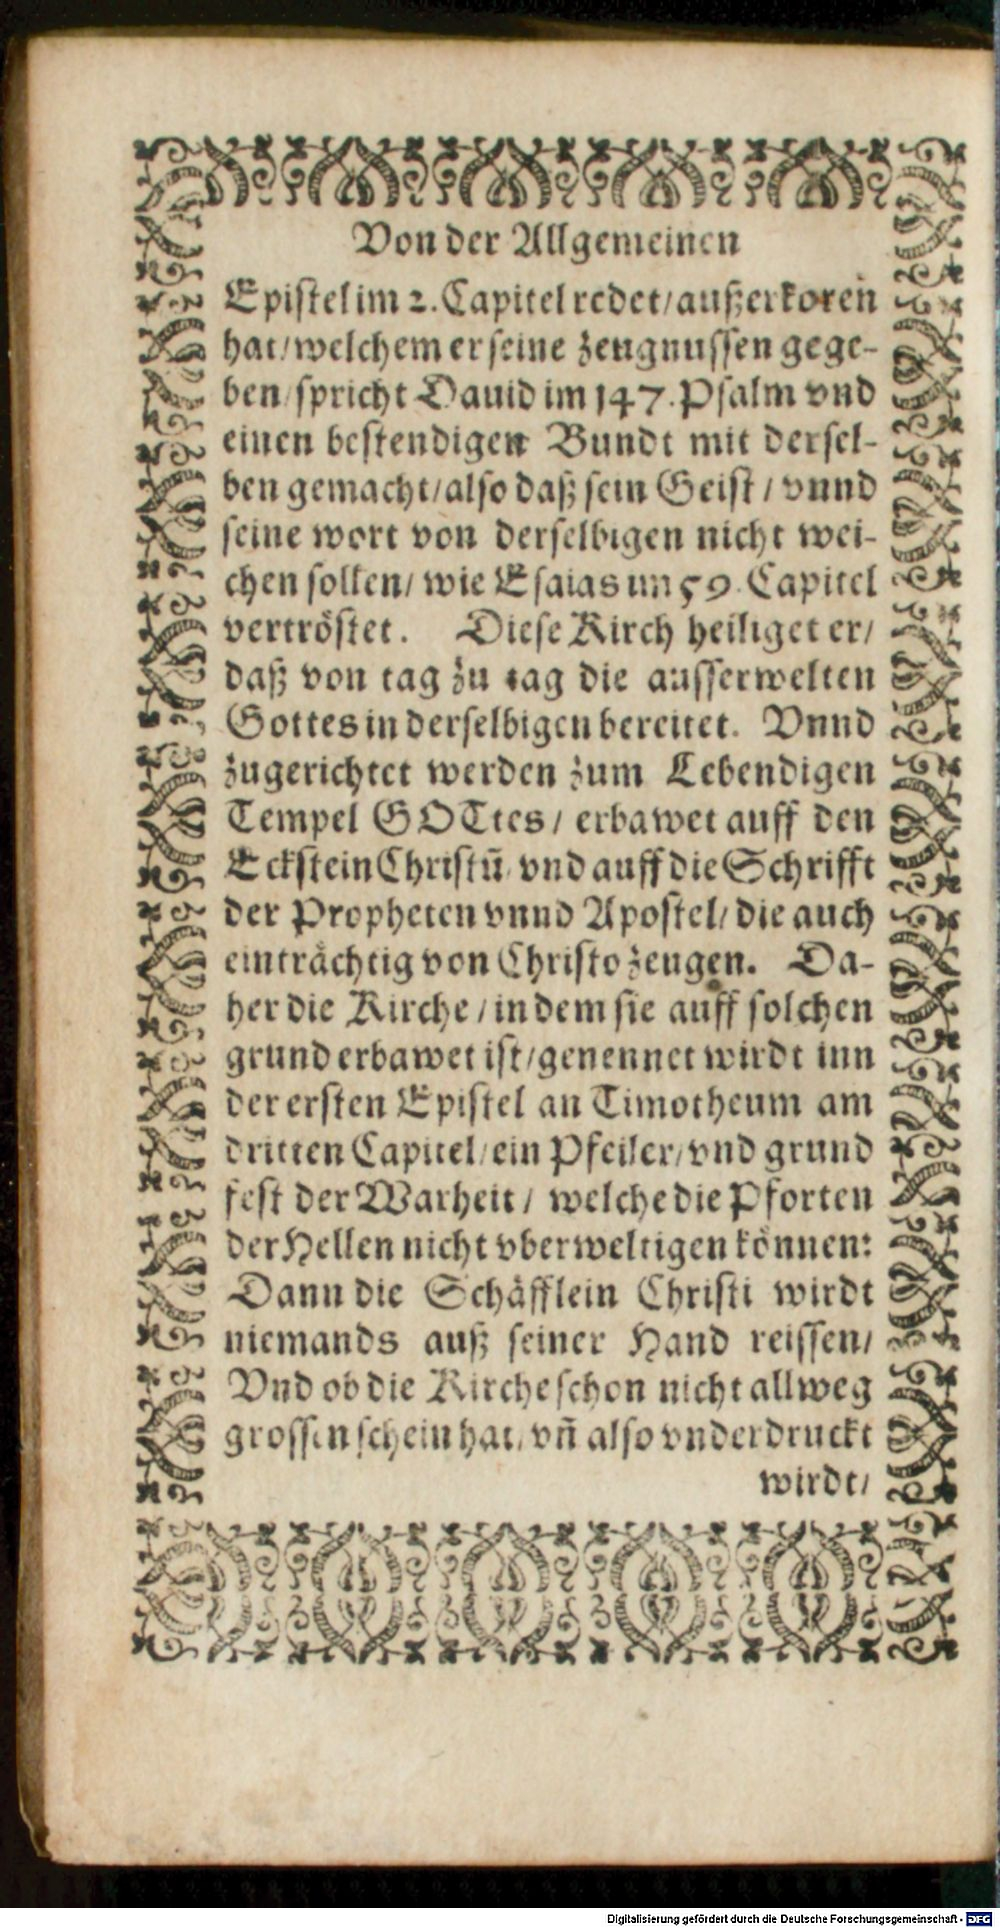 Von der Allgemeinen
Epistel im 2. Capitel redet/ außerkoren
hat/ welchem er seine zeugnussen gege-
ben/ spricht Dauid im 147. Psalm vnd
einen bestendigen Bundt mit dersel-
ben gemacht/ also daß sein Geist / vnnd
seine wort von derselbigen nicht wei-
chen sollen/ wie Esaias im 59. Capitel
vertröstet. Diese Kirch heiliget er/
daß von tag zu tag die ausserwelten
Gottes in derselbigen bereitet. Vnnd
zugerichtet werden zum Lebendigen
Tempel GOTtes / erbawet auff den
Eckstein Christū/ vnd auff die Schrifft
der Propheten vnnd Apostel/ die auch
einträchtig von Christo zeugen. Da-
her die Kirche / in dem sie auff solchen
grund erbawet ist/ genennet wirdt inn
der ersten Epistel an Timotheum am
dritten Capitel/ ein Pfeiler/ vnd grund
fest der Warheit / welche die Pforten
der Hellen nicht vberweltigen können:
Dann die Schäfflein Christi wirdt
niemands auß seiner Hand reissen/
Vnd ob die Kirche schon nicht allweg
grossen schein hat/ vn̄ also vnderdruckt
wirdt/
Digitalisierung gefördert durch die Deutsche Forschungsgemeinschaft - DFG